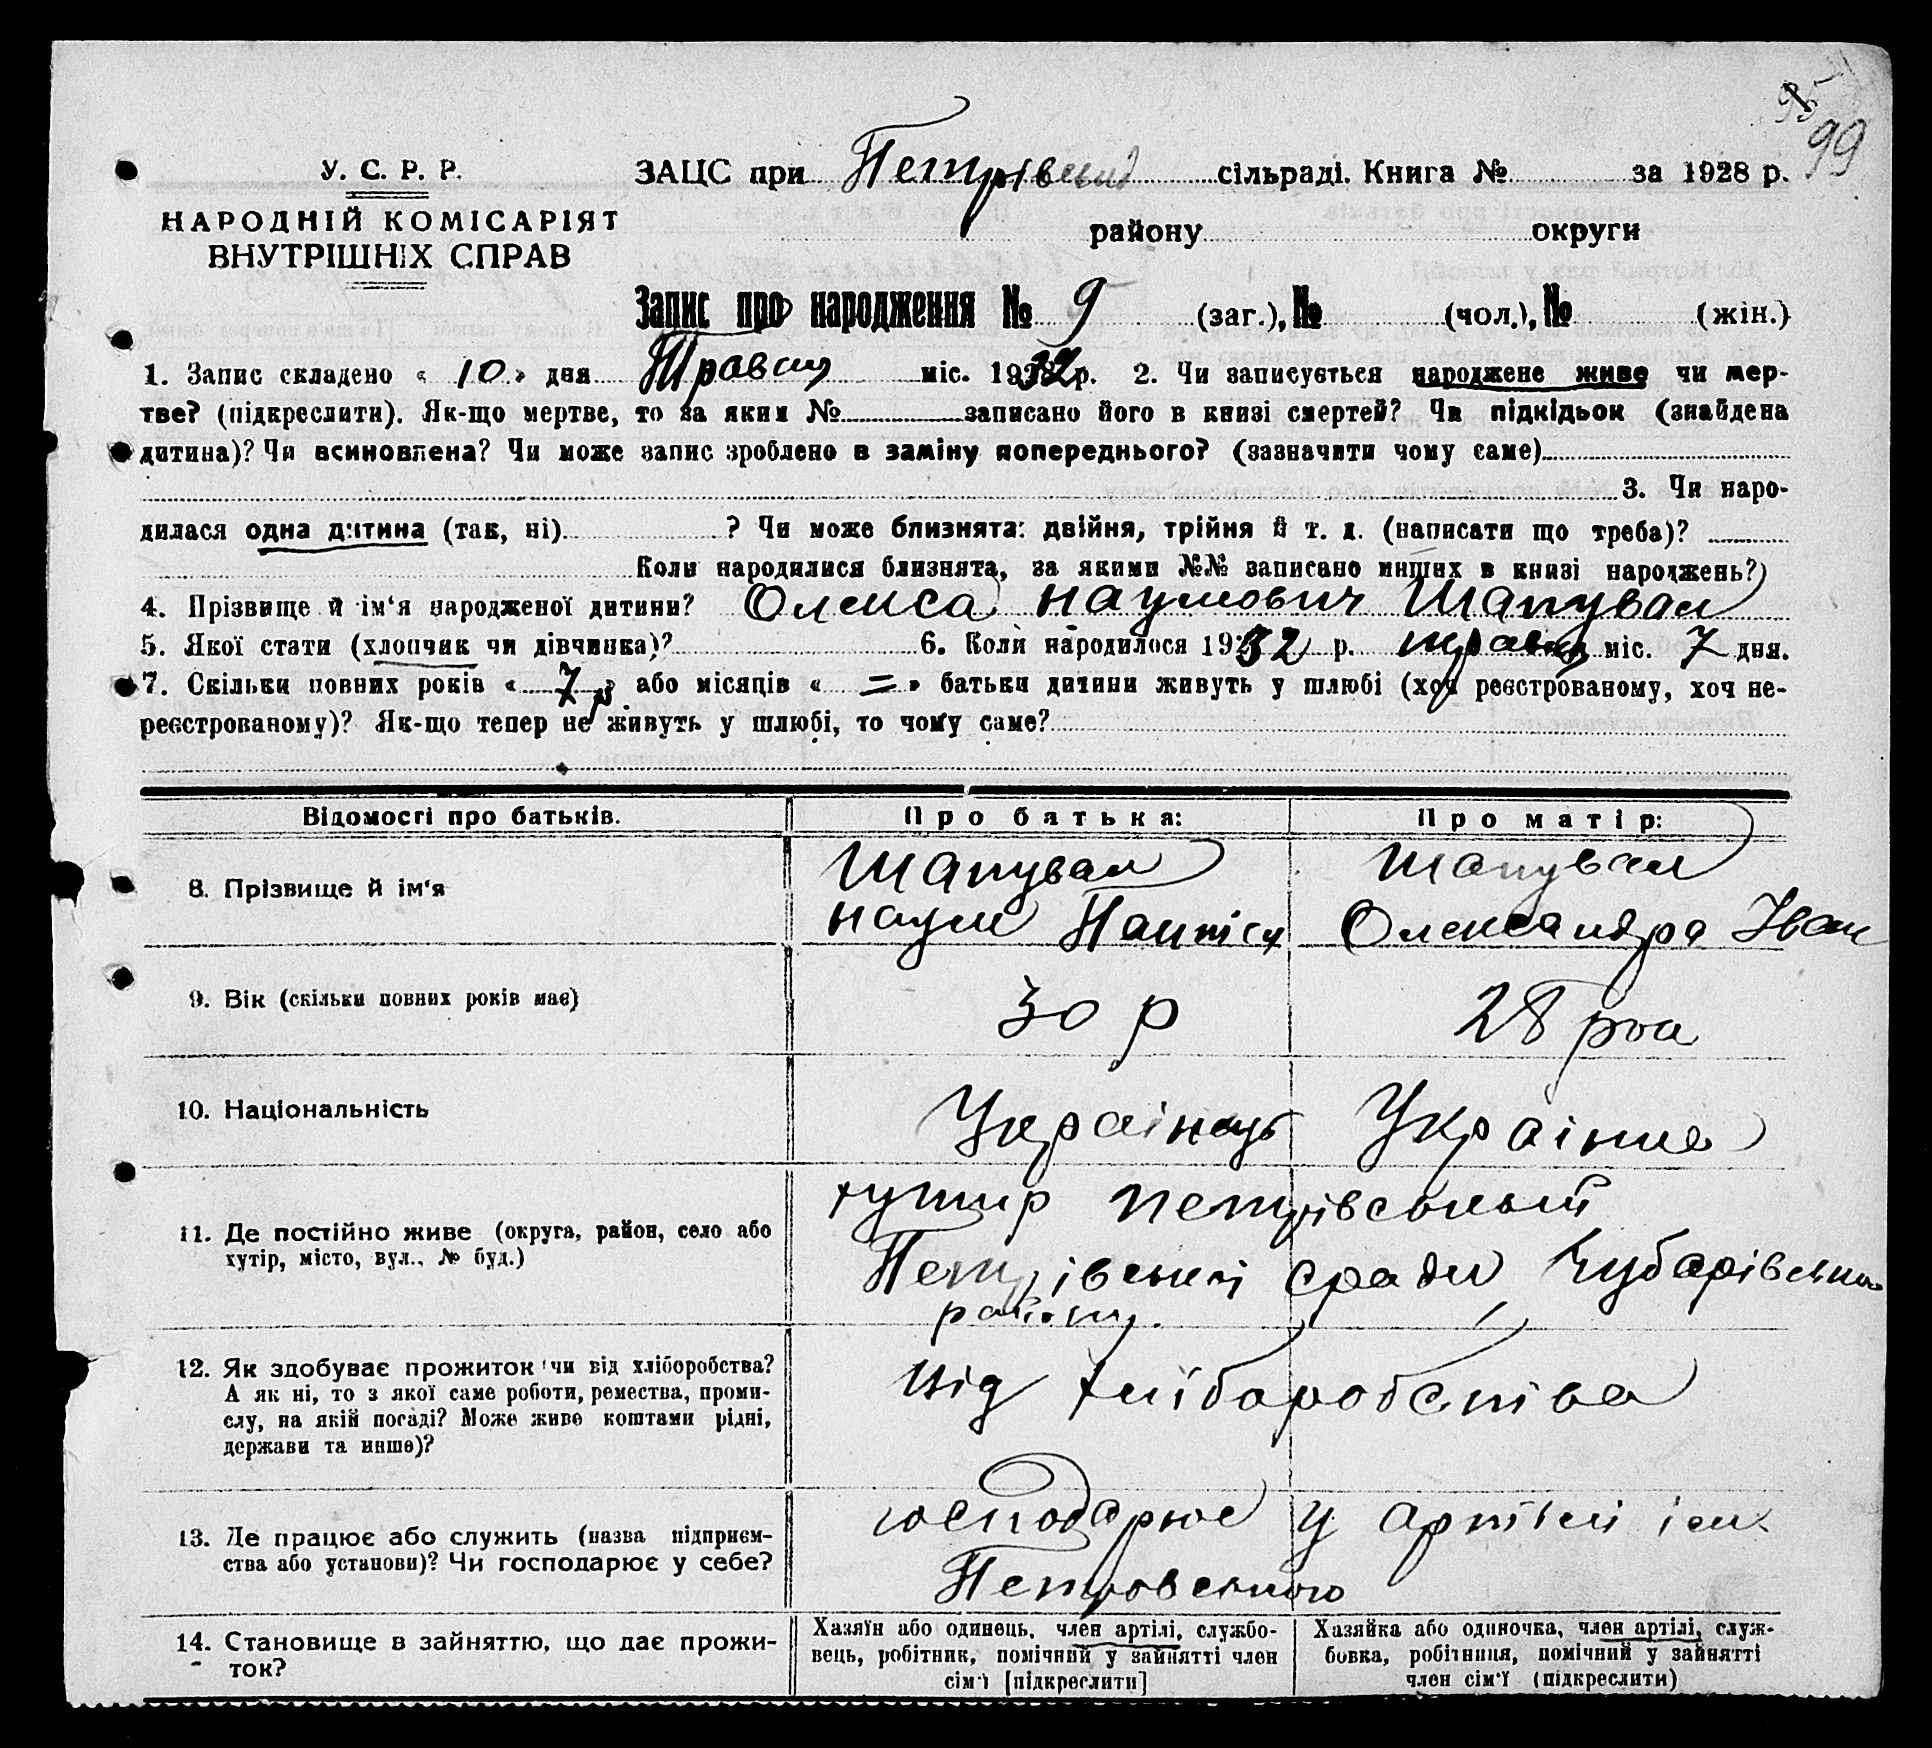 95
99
У. С. Р. Р.
НАРОДНІЙ КОМІСАРІЯТ
ВНУТРІШНІХ СПРАВ
ЗАЦС при Петрівській сільраді. Книга № за 1928 р.
району округи
Запис про народження № 9 (заг.), № (чол.), № (жін.)
1. Запис складено « 10 » дня Травня міс. 1932 р. 2. Чи записується народжене живе чи мер-
тве? (підкреслити). Як-що мертве, то за яким № записано його в книзі смертей? Чи підкідьок (знайдена
дитина)? Чи всиновлена? Чи може запис зроблено в заміну попереднього? (зазначити чому саме)
3. Чи наро-
дилася одна дитина (так, ні) ? Чи може близнята: двійня, трійня й т. д. (написати що треба)?
Коли народилися близнята, за якими №№ записано инших в книзі народжень?
4. Прізвище й ім‘я народженої дитини? Олекса Наумович Шапувал
5. Якої стати (хлопчик чи дівчинка)? 6. Коли народилося 1932 р. травня міс. 7 дня.
7. Скільки повних років « 7 р » або місяців « = » батьки дитини живуть у шлюбі (хоч реєстрованому, хоч не-
реєстрованому)? Як-що тепер не живуть у шлюбі, то чому саме?
Відомості про батьків. Про батька: Про матір:
8. Прізвище й ім‘я Шапувал Наум Шапувал Олександра Іван
9. Вік (скільки повних років має) 30 р 28 роа
10. Національність Українець Українка
11. Де постійно живе (округа, район, село або
хутір, місто, вул., № буд.)
хутир Петрівський
Петрівської сради Чубарівського
району.
12. Як здобуває прожиток чи від хліборобства?
А як ні, то з якої саме роботи, ремества, проми-
слу, на якій посаді? Може живе коштами рідні,
держави та инше)?
від хліборобства
13. Де працює або служить (назва підприєм-
ства або установи)? Чи господарює у себе?
господарює у артілі ім.
Петровського
14. Становище в зайняттю, що дає прожи-
ток?
Хазяїн або одинець, член артілі, службо-
вець, робітник, помічний у зайнятті член
сім'ї [підкреслити]
Хазяйка або одиночка, член артілі, служ-
бовка, робітниця, помічний у зайнятті
член сім'ї (підкреслити)